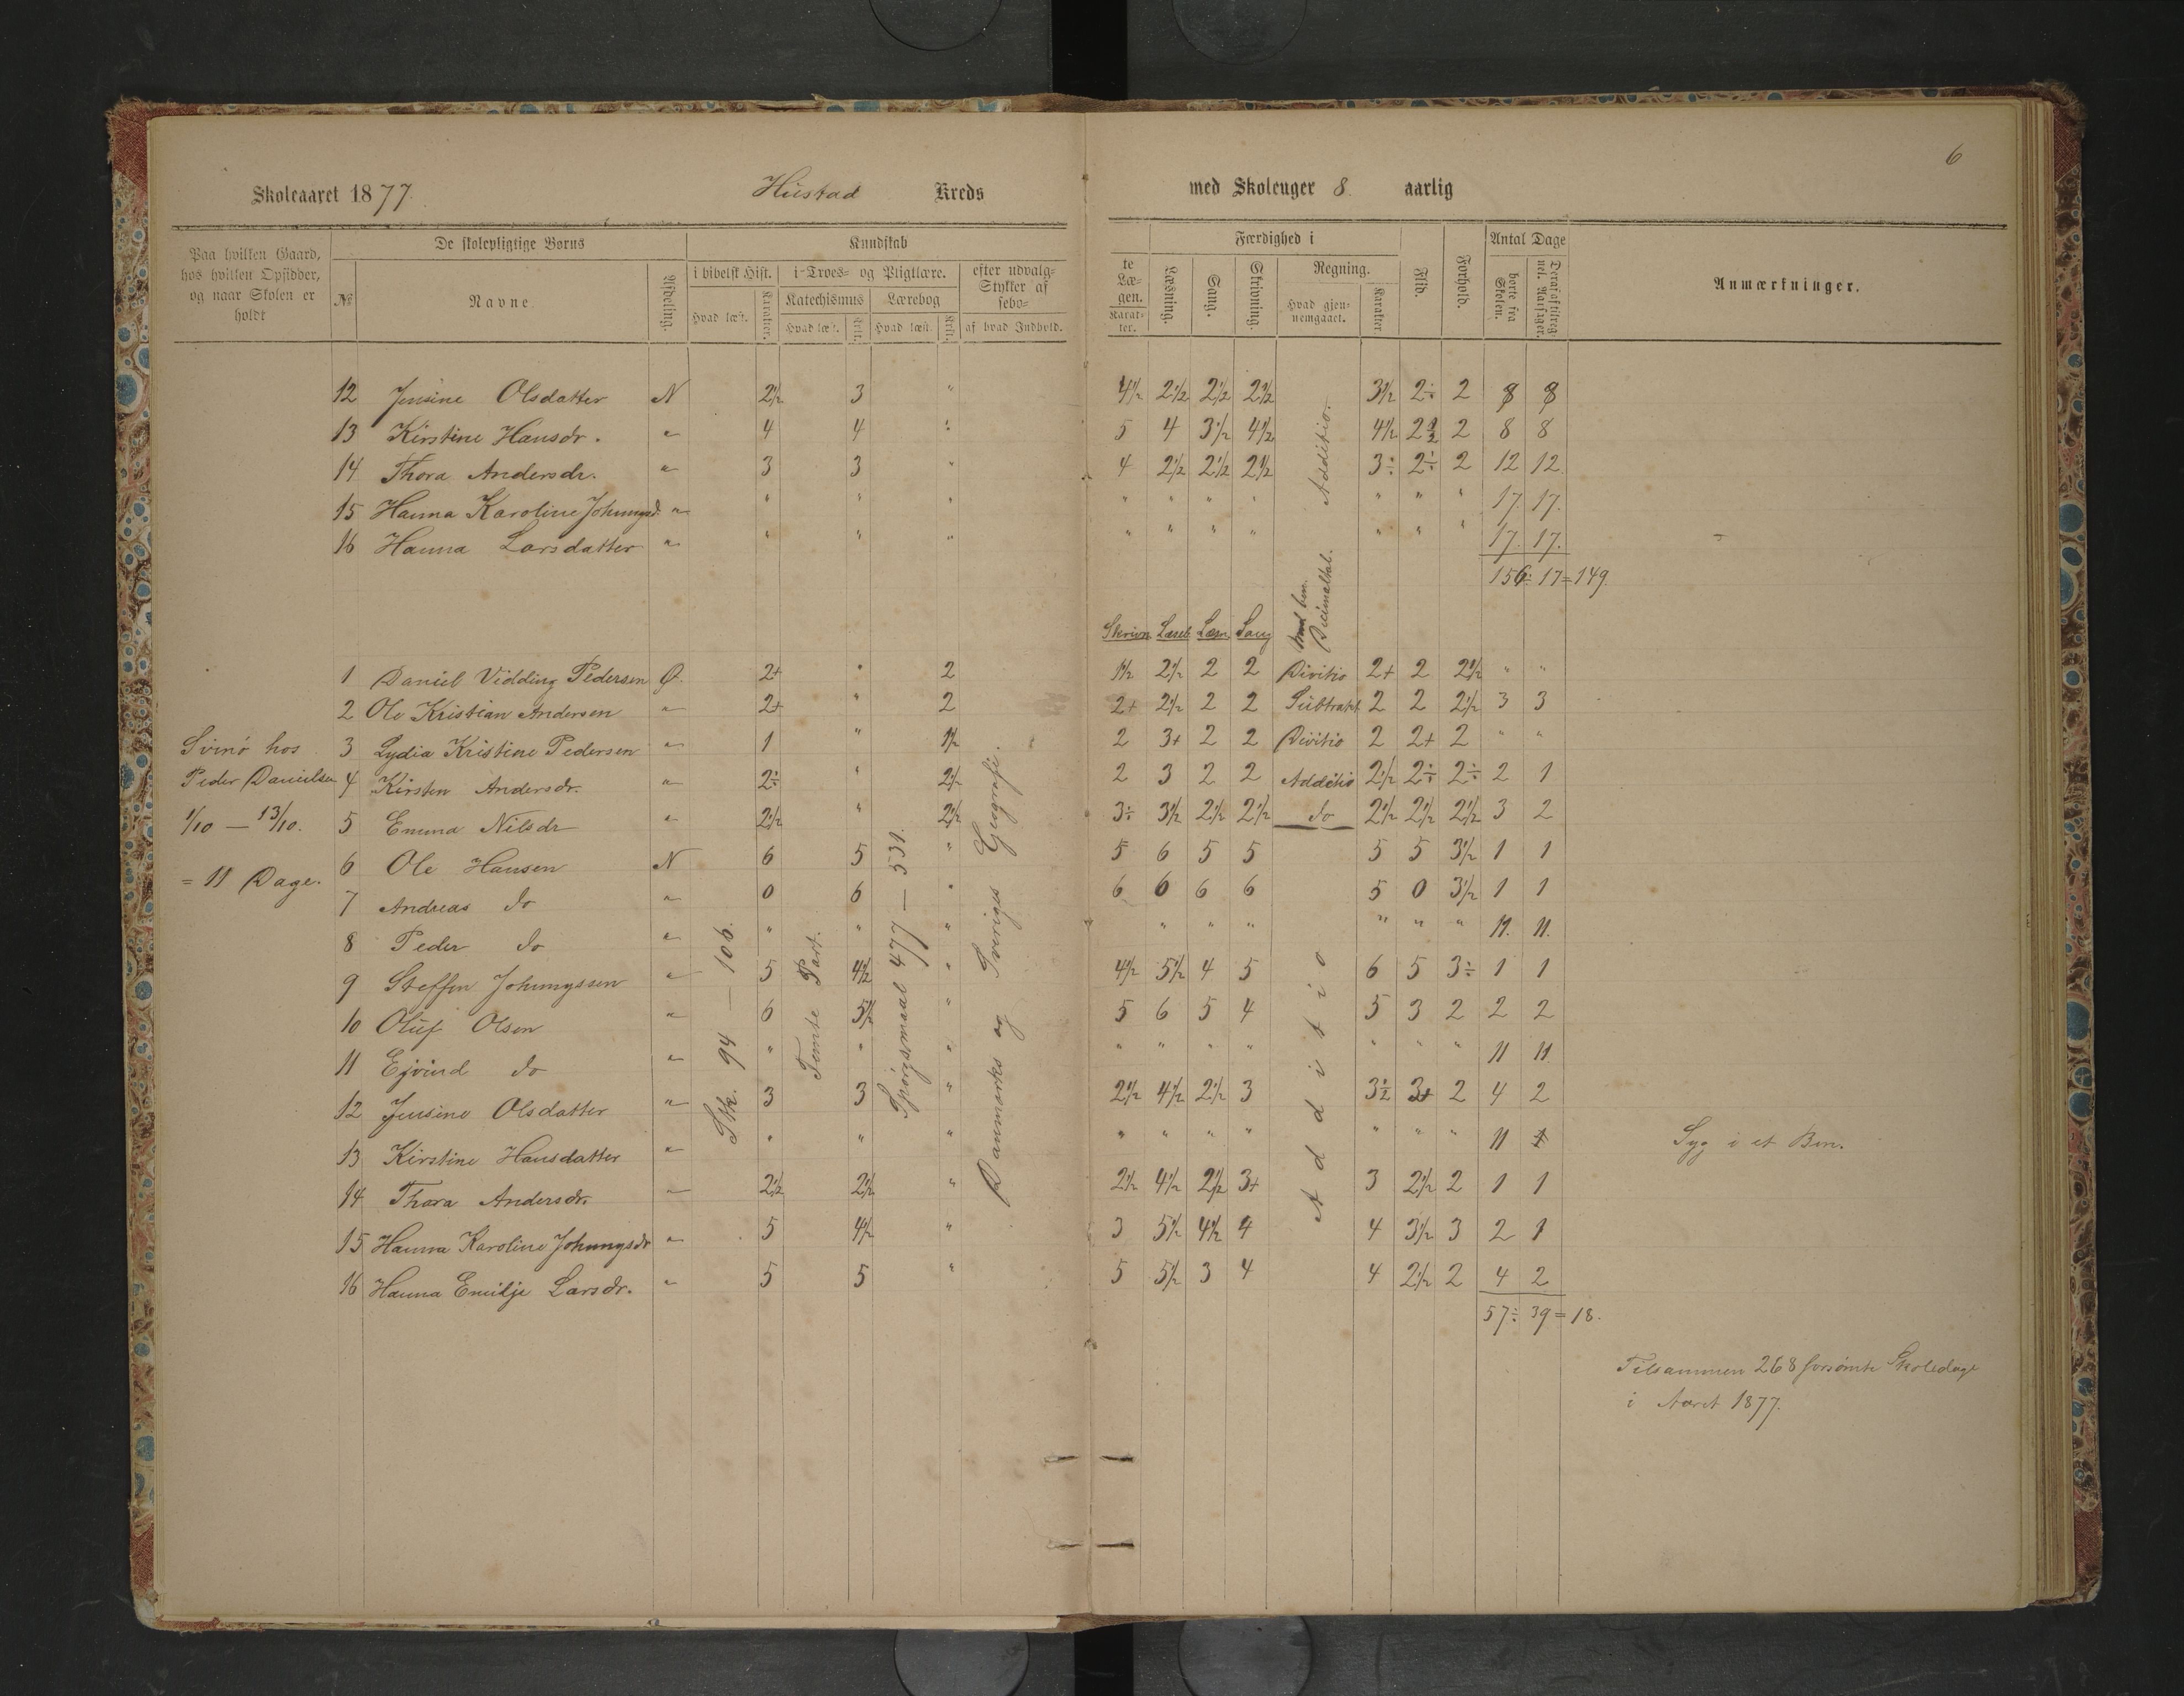 6
Skoleaaret 1877. Hustad Kreds med Skoleuger 8. aarlig
Paa hvilken Gaard, hos hvilken Opsidder, og naar Skolen er holdt
De skolepligtige Børns
No Navne Afdeling.
Kundskab
i bibelsk Hist. i Troes- og Pligtlære. efter udvalg-
Stykker af
sebo-
Katechismus Lærebog
Hvad læst. Karakter. Hvad læst. Krkt. Hvad læst Krkt. af hvad Indhold.
te Læ-
gen.
Karak-
ter.
Færdighed i
Læsning. Sang. Skrivning. Regning.
Hvad gjen-
nemgaaet. Karakter
Flid. Forhold.
Antal Dage
borte fra Skolen.
Anmærkninger.
12 Jensine Olsdatter N 2½ 3 " 4½ 2½ 2½ 2½ 3½ 2÷ 2 8 8
13 Kirstine Hansdr. " 4 4 " 5 4 3½ 4½ 4½ 2½ 2 8 8
14 Thora Andersdr. " 3 3 " 4 2½ 2½ 2½ 3÷ 2÷ 2 12 12
15 Hanna Karoline Johnnysd. " " " " " " " " " " " 17. 17.
16 Hanna Larsdatter " " " " " " " " " " " 17. 17.
Additio.
156÷17=149.
Skrivn. Læseb. Læsn Sang
Decimaltal.
1 Daniel Vidding Pedersen Ø. 2+ " 2 1½ 2½ 2 2 Divitio 2+ 2 2½ " "
2 Ole Kristian Andersen " 2+ " 2 2+ 2½ 2 2 Subtrakt 2 2 2½ 3 3
3 Lydia Kristine Pedersen " 1 " 1½ 2 3+ 2 2 Divitio 2 2+ 2 " "
4 Kirsten Andersdr. " 2÷ " 2½ 2 3 2 2 Additio 2½ 2÷ 2÷ 2 1
5 Emma Nilsdr " 2½ " 2½ 3÷ 3½ 2½ 2½ do 2½ 2½ 2½ 3 2
6 Ole Hansen N 6 5 " 5 6 5 5 5 5 3½ 1 1
7 Andreas do " 0 6 " 6 6 6 6 5 0 3½ 1 1
8 Peder do " " " " " " " " " " 11. 11.
9 Steffen Johnnyssen " 5 4½ " 4½ 5½ 4 5 6 5 3÷ 1 1
10 Oluf Olsen " 6 5½ " 5 6 5 4 5 3 2 2 2
11 Ejvind do " " " " " " " " " " " 11 11
12 Jensine Olsdatter " 3 3 " 2½ 4½ 2½ 3 3½ 3+ 2 4 2
13 Kirstine Hansdatter " " " " " " " " " " " 11 Syg i et Ben.
14 Thora Andersdr. " 2½ 2½ " 2½ 4½ 2½ 3+ 3 2½ 2 1 1
15 Hanna Karoline Johnnysdr " 5 4½ " 3 5½ 4½ 4 4 3½ 3 2 1
16 Hanna Emilje Larsdr. " 5 5 " 5 5½ 3 4 4 2½ 2 4 2
Svinø hos
Peder Danielsen
1/10 — 13/10.
= 11 Dage.
Stk. 94 — 106.
Femte Part.
Spørgsmaal 477 — 531.
Danmarks og Sveriges Geografi.
Additio
57÷39=18.
Tilsammen 268 forsømte Skoledage
i Aaret 1877.